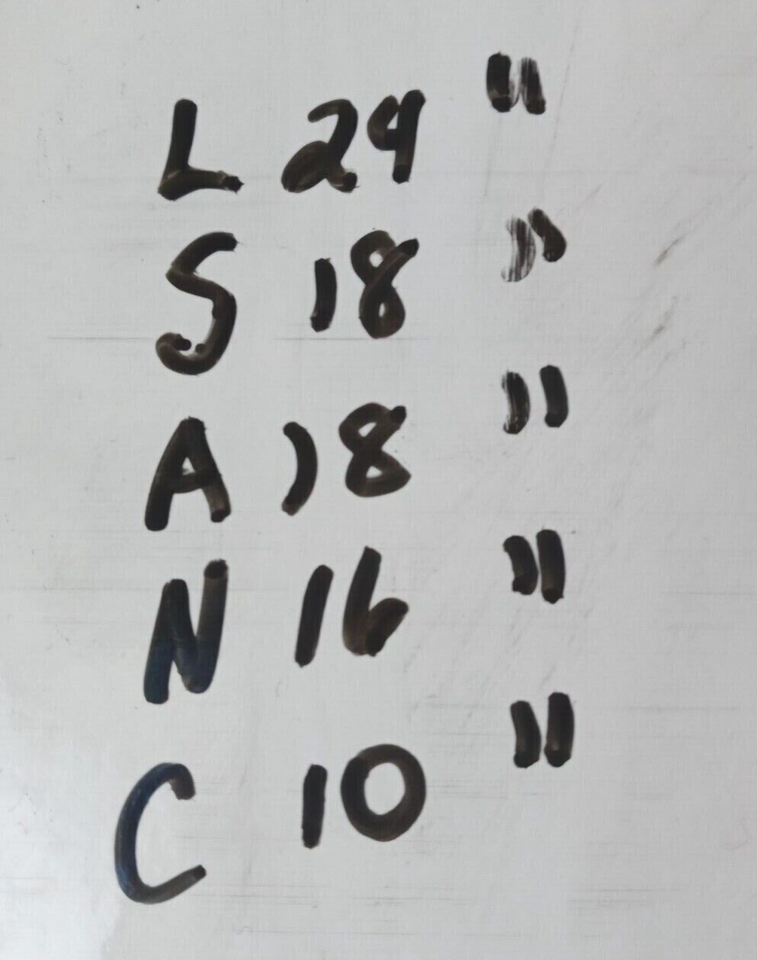 L 24 "
S 18 "
A 18 "
N 16 "
C 10 "